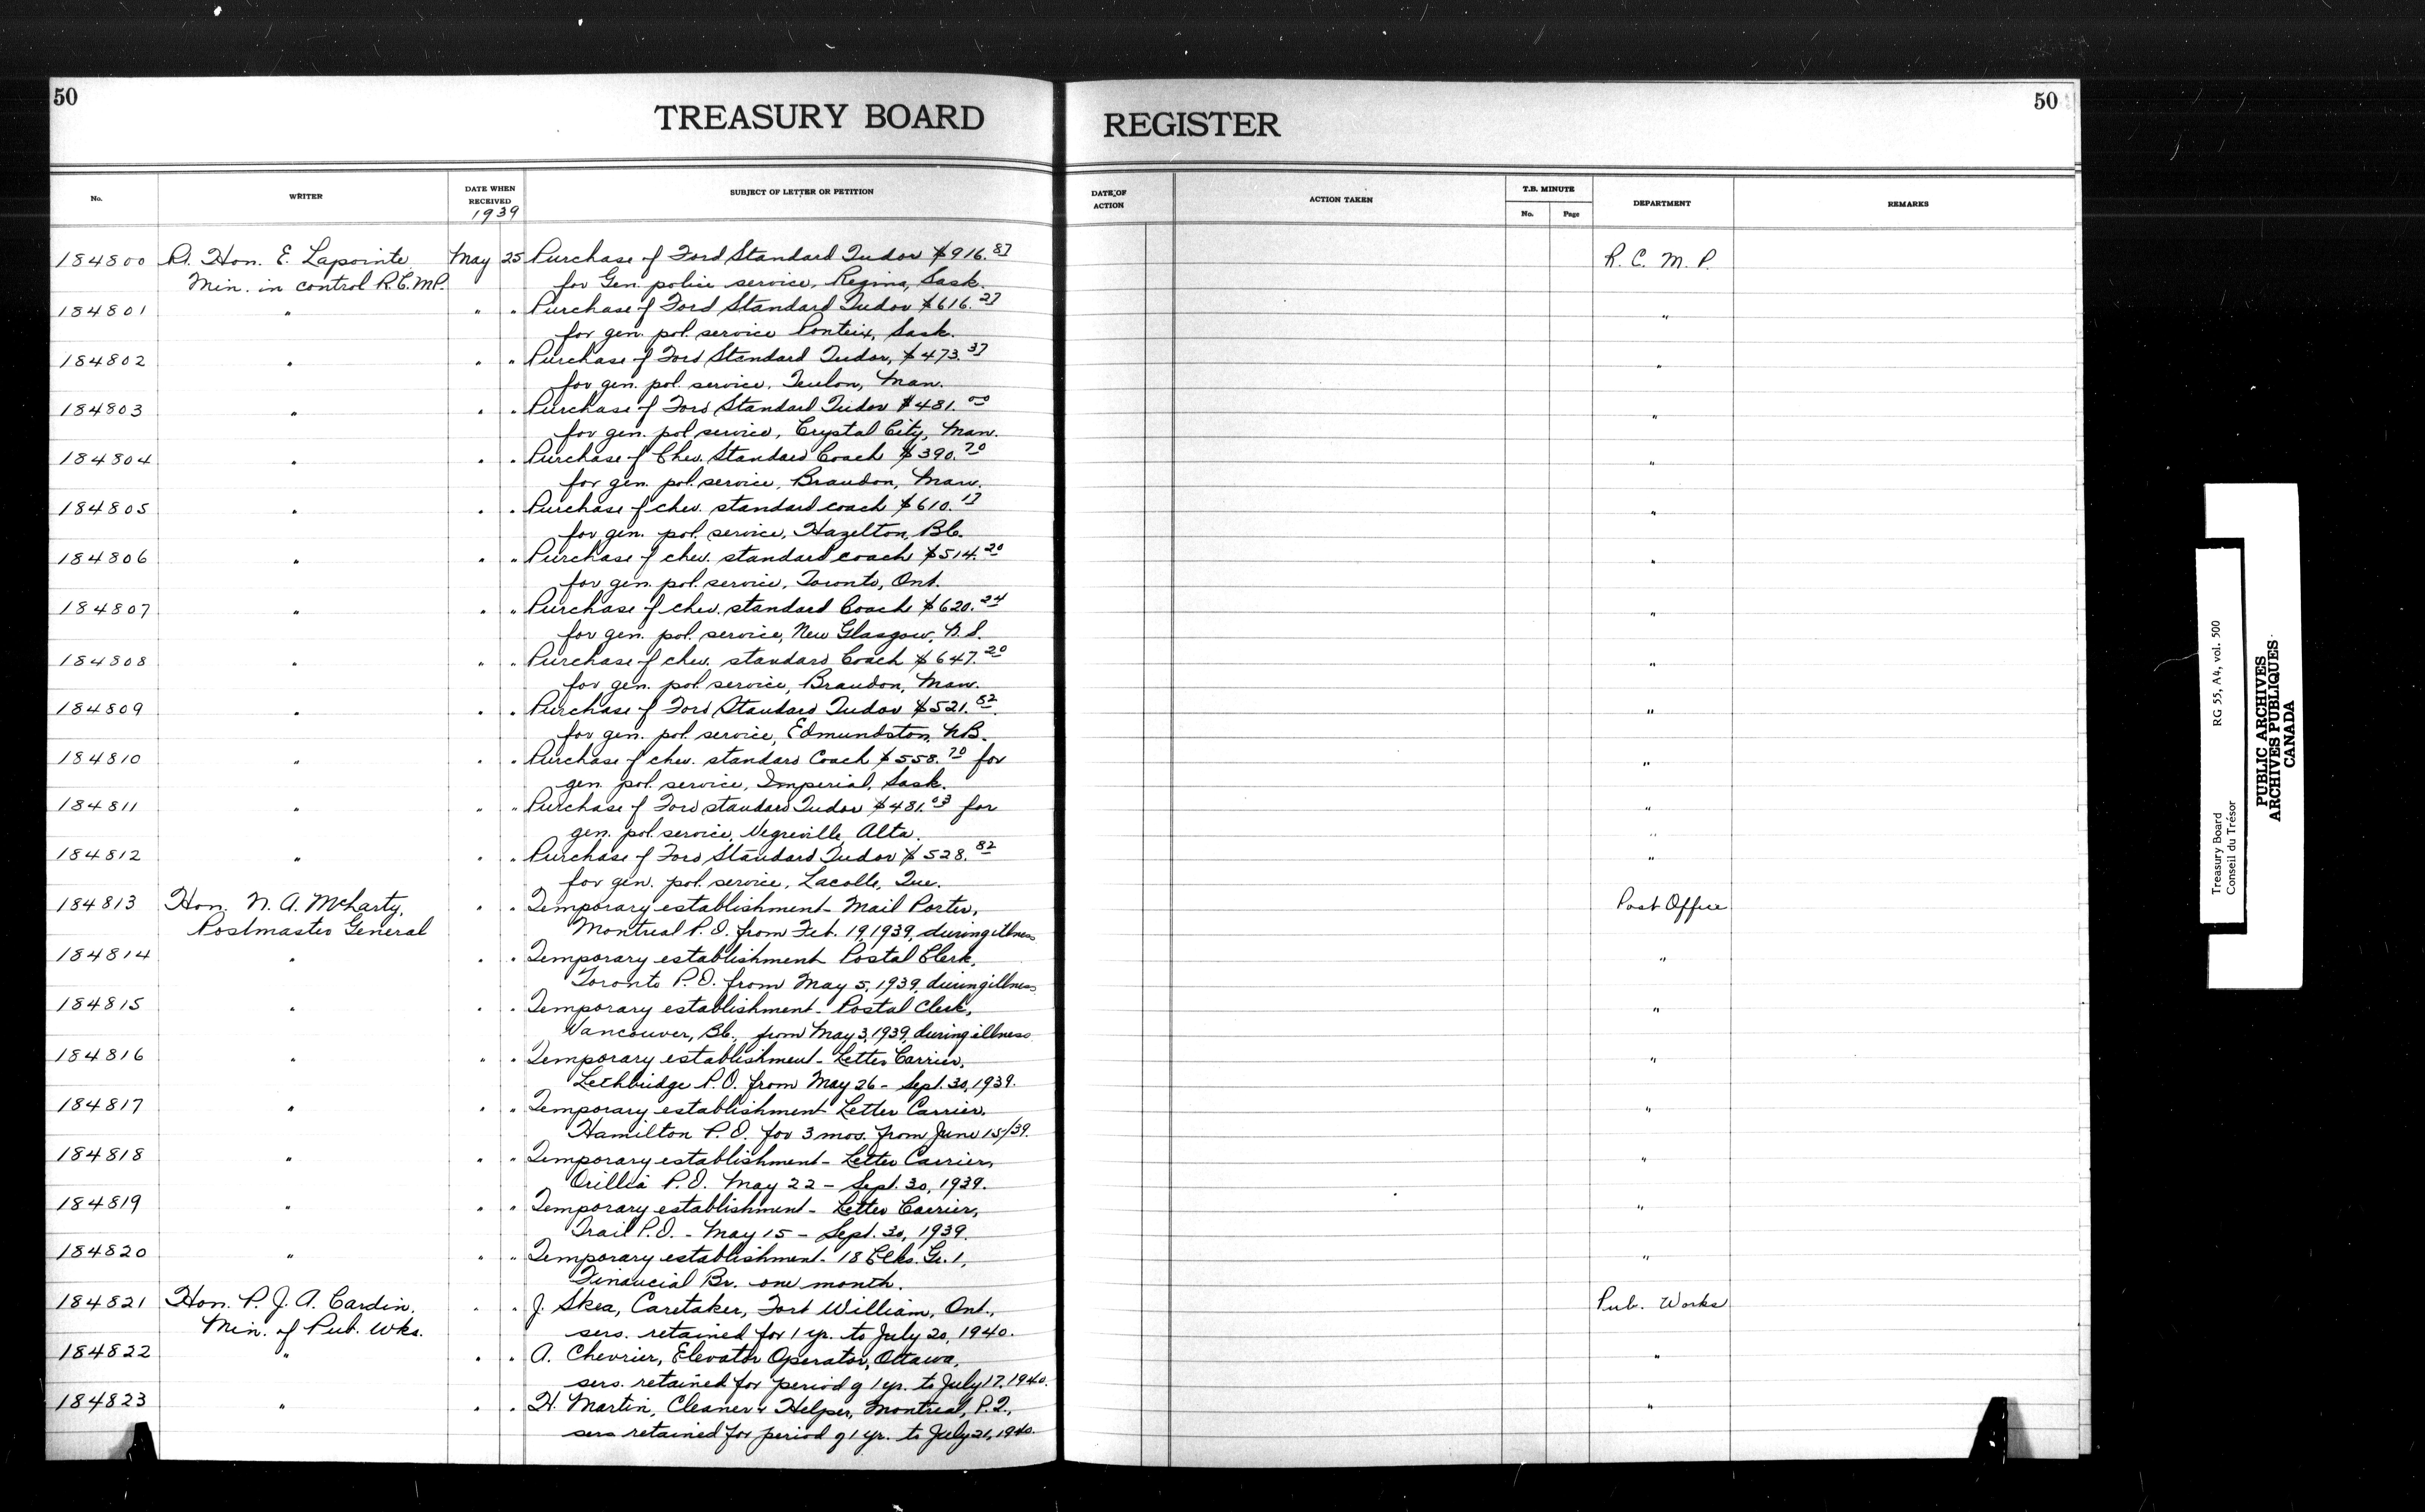 50
TREASURY BOARD
REGISTER
50
No.
WRITER
DATE WHEN RECEIVED
1939
SUBJECT OF LETTER OR PETITION
DATE OF ACTION
ACTION TAKEN
T.B. MINUTE
No.
Page
DEPARTMENT
REMARKS
184800 Rt. Hon. E. Lapointe May 25 Purchase of Ford Standard Tudor $916.87 R. C. M. P.
Min. in control R.C.M.P. for Gen. police service, Regina, Sask.
184801 " " " Purchase of Ford Standard Tudor $616.27 "
for gen. pol. service Ponteix, Sask.
184802 " " " Purchase of Ford Standard Tudor, $473.37 "
for gen. pol. service, Teulon, Man.
184803 " " " Purchase of Ford Standard Tudor $481.00 "
for gen. pol service, Crystal City, Man.
184804 " " " Purchase of Chev. Standard Coach $390.70 "
for gen. pol. service, Brandon, Man.
184805 " " " Purchase of chev. standard coach $610.17 "
for gen. pol. service, Hazelton, B.C.
184806 " " " Purchase of chev. standard coach $514.20 "
for gen. pol. service, Toronto, Ont.
184807 " " " Purchase of chev. standard Coach $620.24 "
for gen. pol. service, New Glasgow, N.S.
184808 " " " Purchase of chev. standard Coach $647.20 "
for gen. pol. service, Brandon, Man.
184809 " " " Purchase of Ford Standard Tudor $521.82 "
for gen. pol. service, Edmundston, N.B.
184810 " " " Purchase of chev. standard Coach $558.70 for "
gen. pol. service, Imperial, Sask.
184811 " " " Purchase of Ford standard Tudor $481.03 for "
gen. pol. service, Vegreville, Alta. "
184812 " " " Purchase of Ford Standard Tudor $528.82 "
for gen. pol. service, Lacolle, Que.
184813 Hon. N. A. McLarty, " " Temporary establishment - Mail Porter, Post Office
Postmaster General Montreal P.O. from Feb. 19, 1939, during illness
184814 " " " Temporary establishment Postal Clerk, "
Toronto P.O. from May 5, 1939, during illness
184815 " " " Temporary establishment - Postal Clerk, "
Vancouver, B.C., from May 3, 1939, during illness
184816 " " " Temporary establishment - Letter Carrier, "
Lethbridge P.O. from May 26 - Sept. 30, 1939.
184817 " " " Temporary establishment Letter Carrier, "
Hamilton P.O. for 3 mos. from June 15/39.
184818 " " " Temporary establishment - Letter Carrier, "
Orillia P.O. May 22 - Sept. 30, 1939.
184819 " " " Temporary establishment - Letter Carrier, "
Trail P.O. - May 15 - Sept. 30, 1939.
184820 " " " Temporary establishment - 18 Clks. Gr. 1, "
Financial Br. one month.
184821 Hon. P. J. A. Cardin, " " J. Skea, Caretaker, Fort William, Ont., Pub. Works
Min. of Pub. Wks. sers. retained for 1 yr. to July 20, 1940.
184822 " " " A. Chevrier, Elevator Operator, Ottawa, "
sers. retained for period of 1 yr. to July 17, 1940.
184823 " " " H. Martin, Cleaner & Helper, Montreal, P.Q., "
sers retained for period of 1 yr. to July 21, 1940.
Treasury Board RG 55, A4, vol. 500
Conseil du Trésor
PUBLIC ARCHIVES
ARCHIVES PUBLIQUES
CANADA